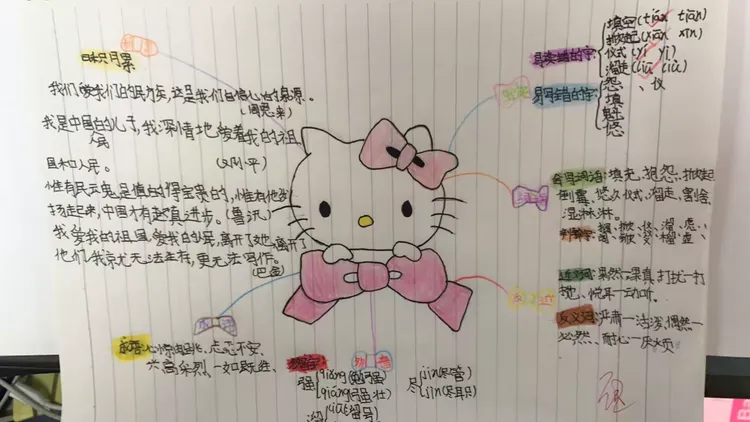 日积月累
我们爱我们的民族,这是我们自信心的泉源。
(周恩来)
我是中国人民的儿子,我深情地爱着我的祖
国和人民。(邓小平)
惟有民云魂是值的得宝贵的,惟有他发
扬起来,中国才有起真进步。(鲁迅)
我爱我的祖国,爱我的人民,离开了她,离开了
他们,我京尤无法生存,更无法写作。
(巴金)
易读错的字
填空(tián tiān)
掀起(xiān xīn)
仪式(yí yī)
溜走(liū liù)
易写错的字
怨、仪
填
魁
悠
会写词语:填充、抱怨、掀起
倒霉、悠久、仪式、溜走、
湿淋淋。
近义词:果然—果真、打扰—打
地、悦耳—动听。
反义词:严肃—活泼、偶然—
必然、耐心—厌烦
忐忑不安、
兴高采烈、一如既往、
多音字
强 qiǎng(勉强)
qiáng(强壮)
尽 jǐn(尽管)
jìn(尽职)
留 liú(留号)